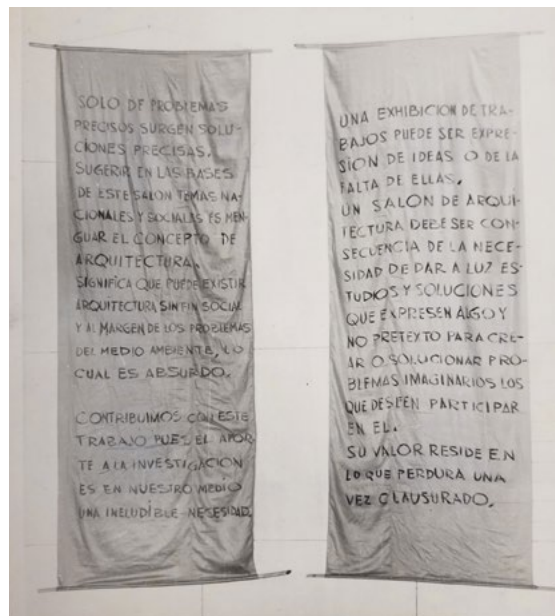 SOLO DE PROBLEMAS
PRECISOS SURGEN SOLU-
CIONES PRECISAS.
SUGERIR EN LAS BASES
DE ESTE SALON TEMAS NA-
CIONALES Y SOCIALES ES MEN-
GUAR EL CONCEPTO DE
ARQUITECTURA.
SIGNIFICA QUE PUEDE EXISTIR
ARQUITECTURA SIN FIN SOCIAL
Y AL MARGEN DE LOS PROBLEMAS
DEL MEDIO AMBIENTE, LO
CUAL ES ABSURDO.
CONTRIBUIMOS CON ESTE
TRABAJO PUES EL APOR-
TE A LA INVESTIGACION
ES EN NUESTRO MEDIO
UNA INELUDIBLE NECESIDAD.
UNA EXHIBICION DE TRA-
BAJOS PUEDE SER EXPRE-
SION DE IDEAS O DE LA
FALTA DE ELLAS.
UN SALON DE ARQUI-
TECTURA DEBE SER CON-
SECUENCIA DE LA NECE-
SIDAD DE DAR A LUZ ES-
TUDIOS Y SOLUCIONES
QUE EXPRESEN ALGO Y
NO PRETEXTO PARA CRE-
AR O SOLUCIONAR PRO-
BLEMAS IMAGINARIOS LOS
QUE DESEEN PARTICIPAR
EN EL.
SU VALOR RESIDE EN
LO QUE PERDURA UNA
VEZ CLAUSURADO.